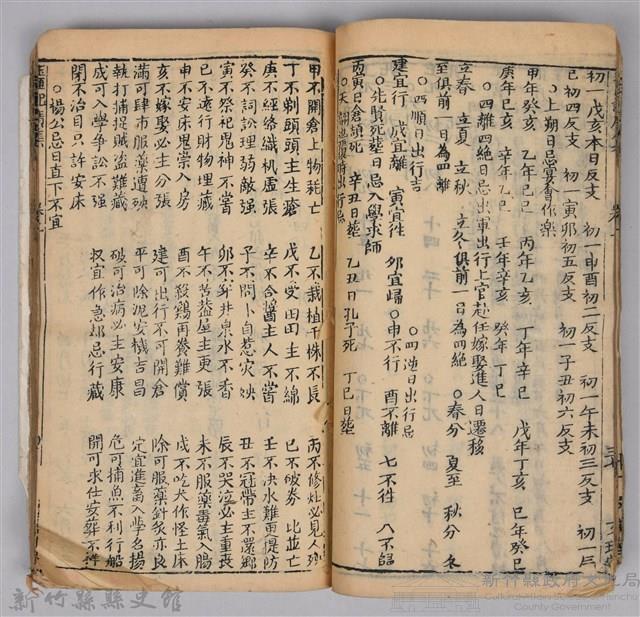 初一戊亥本日反支 初一申酉初二反支 初一午未初三反支 初一辰
巳初四反支 初一寅卯初五反支 初一子丑初六反支
○上朔日忌宴會作樂
甲年癸亥 乙年己巳 丙年乙亥 丁年辛巳 戊年丁亥 己年癸巳
庚年己亥 辛年乙巳 壬年辛亥 癸年丁巳
○四離四絕日忌出軍出行上官赴任嫁娶進人口遷移
立春 立夏 立秋 立冬俱前一日為四絕 ○春分 夏至 秋分 冬
至俱前一日為四離
○四順日出行吉 ○四逆日出行忌
建宜行 成宜離 寅宜往 卯宜歸 ○申不行 酉不離 七不往 八不歸
○先賢死葬日忌入學求師
丙寅日倉頡死 辛丑日葬 乙丑日孔子死 丁巳日葬
甲不開倉上物耗亡 乙不栽植千株不長 丙不修灶必見火殃
丁不剃頭頭主生瘡 戊不受田田主不綿 己不破券比並亡
庚不經絡織机虛張 辛不合醬主人不嘗 壬不決水難更提防
癸不詞訟理弱敵強 子不問卜自惹災殃 丑不冠帶主不還鄉
寅不祭祀鬼神不嘗 卯不穿井泉水不香 辰不哭泣必主重喪
巳不遠行財物埋藏 午不苫蓋屋主更張 未不服藥毒氣入腸
申不安床鬼祟入房 酉不殺鷄再養難償 戌不吃犬作怪土床
亥不嫁娶必主分張 建可出行不可開倉 除可服藥針炙亦良
滿可肆市服藥遭殃 平可除泥安機吉昌 定宜進畜入學名揚
執打捕捉賊盜難藏 破可治病必主安康 危可捕魚不利行船
成可入學爭訟不強 収宜作急却忌行藏 開可求仕安葬不祥
閉不治目只許安床
○楊公忌日直下不宜
新竹縣縣史館
新竹縣政府文化局
County Government